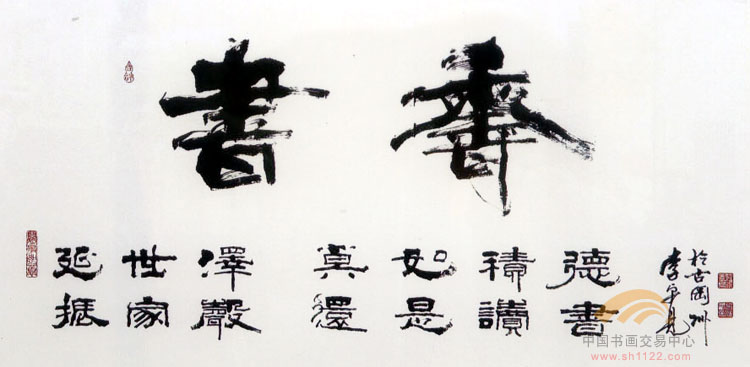 書香
延世澤莫如積德
振家聲還是讀書
於古岡州
中国书画交易中心
www.sh1122.com